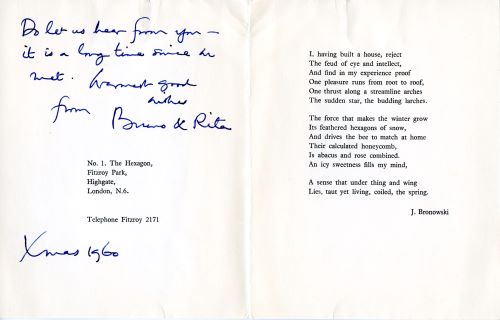 Do let us hear from you —
it is a long time since we
met. Warmest good
wishes
from Bruno & Rita
No. 1. The Hexagon,
Fitzroy Park,
Highgate,
London, N.6.
Telephone Fitzroy 2171
Xmas 1960
I, having built a house, reject
The feud of eye and intellect,
And find in my experience proof
One pleasure runs from root to roof,
One thrust along a streamline arches
The sudden star, the budding larches.
The force that makes the winter grow
Its feathered hexagons of snow,
And drives the bee to match at home
Their calculated honeycomb,
Is abacus and rose combined.
An icy sweetness fills my mind,
A sense that under thing and wing
Lies, taut yet living, coiled, the spring.
J. Bronowski